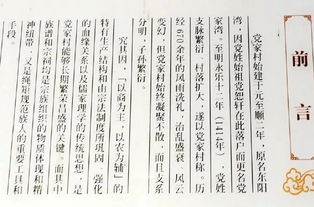 前言
党家村始建于元至顺二年，原名东阳
湾，因党姓始祖党恕轩在此落户而更名党
家湾。至明永乐十二年（1414年），党姓
支脉繁衍、村落扩大，遂以党家村称。历
经670余年的风雨洗礼，治乱盛衰、风云
变幻，但党家村始终凝聚不散，而且支系
分明，子孙繁衍。
究其因，“以商为主，以农为辅”的
特有生产结构和由宗法制度所巩固、强化
的血缘关系以及儒家理学的传统思想，是
党家村能够长期繁荣昌盛的关键。而其中
族谱和宗祠均是宗族组织的物质体现和精
神纽带，又是绳矩规范族人的重要工具和
手段。